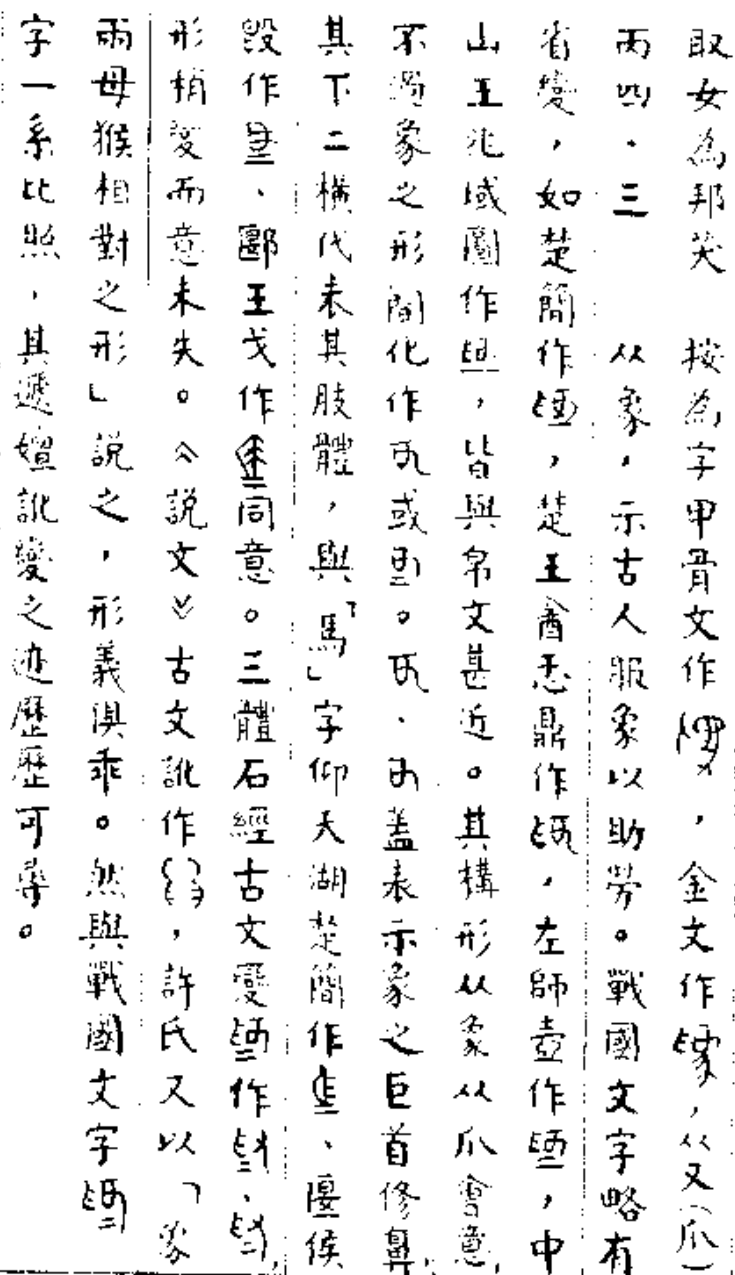 取女為邦芺 按為字甲骨文作，金文作，从又（爪）
丙四·三 从象，示古人服象以助勞。戰國文字略有
省變，如楚簡作，楚王酓忎鼎作，左師壺作，中
山王兆域圖作，皆與帛文甚近。其構形从象从爪會意，
不過象之形簡化作或。、蓋表示象之巨首修鼻，
其下二橫代表其肢體，與「馬」字仰天湖楚簡作、郾侯
𣪘作、郾王戈作同意。三體石經古文變作、，
形稍變而意未失。《說文》古文訛作，許氏又以「象
兩母猴相對之形」說之，形義俱乖。然與戰國文字
字一系比照，其遞嬗訛變之迹歷歷可尋。